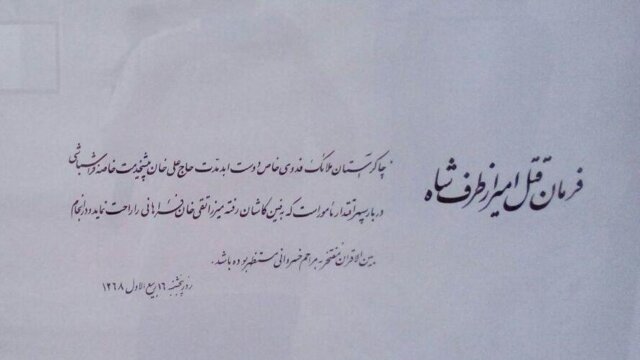 فرمان قتل امیر از طرف شاه
چاکر آستان ملائک فدوی خاص دولت ابد مدت حاج علی خان پیشخدمت خاصه فراشباشی
دربار سپهر اقتدار مأمور است که به فین کاشان رفته میرزا تقی خان فراهانی را راحت نماید و در انجام
بین الاقران مفتخر به مراحم خسروانی مستظهر بوده باشد.
روز پنجشنبه ۱۶ ربیع الاول ۱۲۶۸